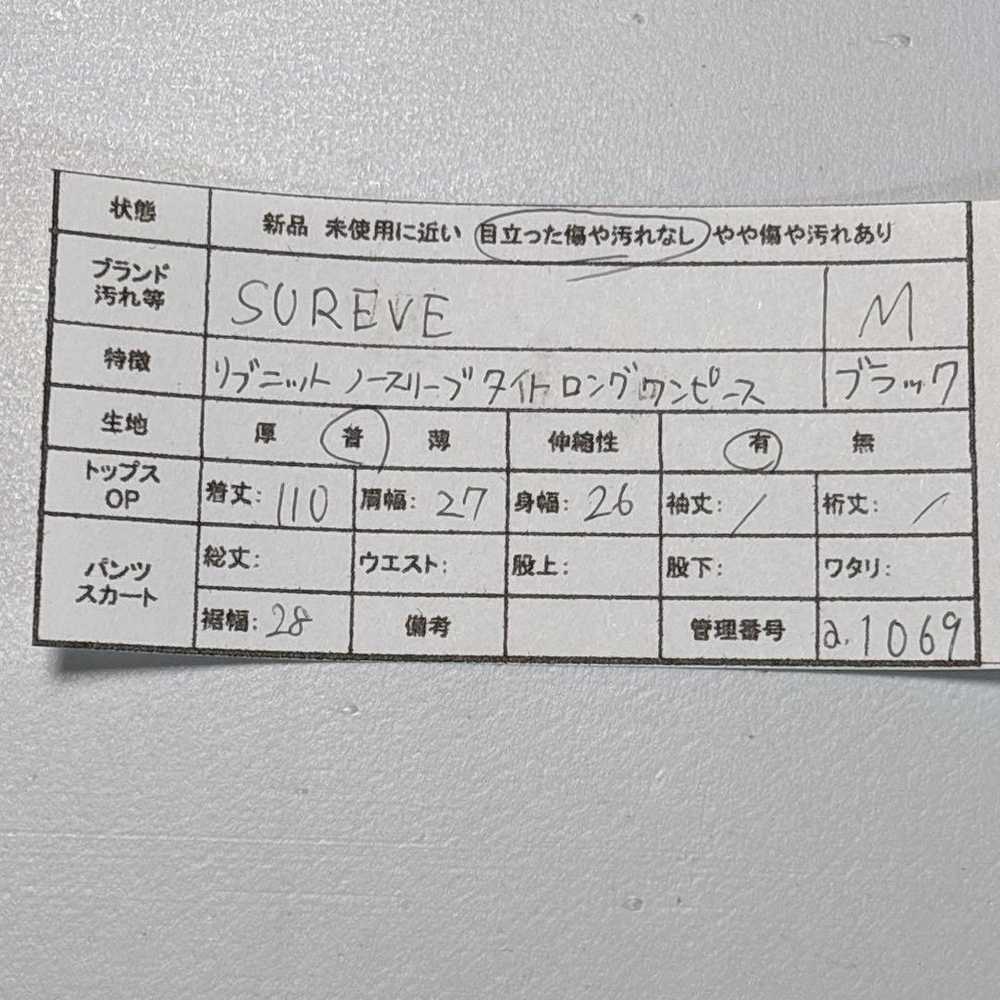 状態 新品 未使用に近い 目立った傷や汚れなし やや傷や汚れあり
ブランド
汚れ等 SUREVE M
特徴 リブニット ノースリーブ タイト ロング ワンピース ブラック
生地 厚 普 薄 伸縮性 有 無
トップス
OP 着丈: 110 肩幅: 27 身幅: 26 袖丈: / 裄丈: /
パンツ
スカート 総丈: ウエスト: 股上: 股下: ワタリ:
裾幅: 28 備考 管理番号 a.1069